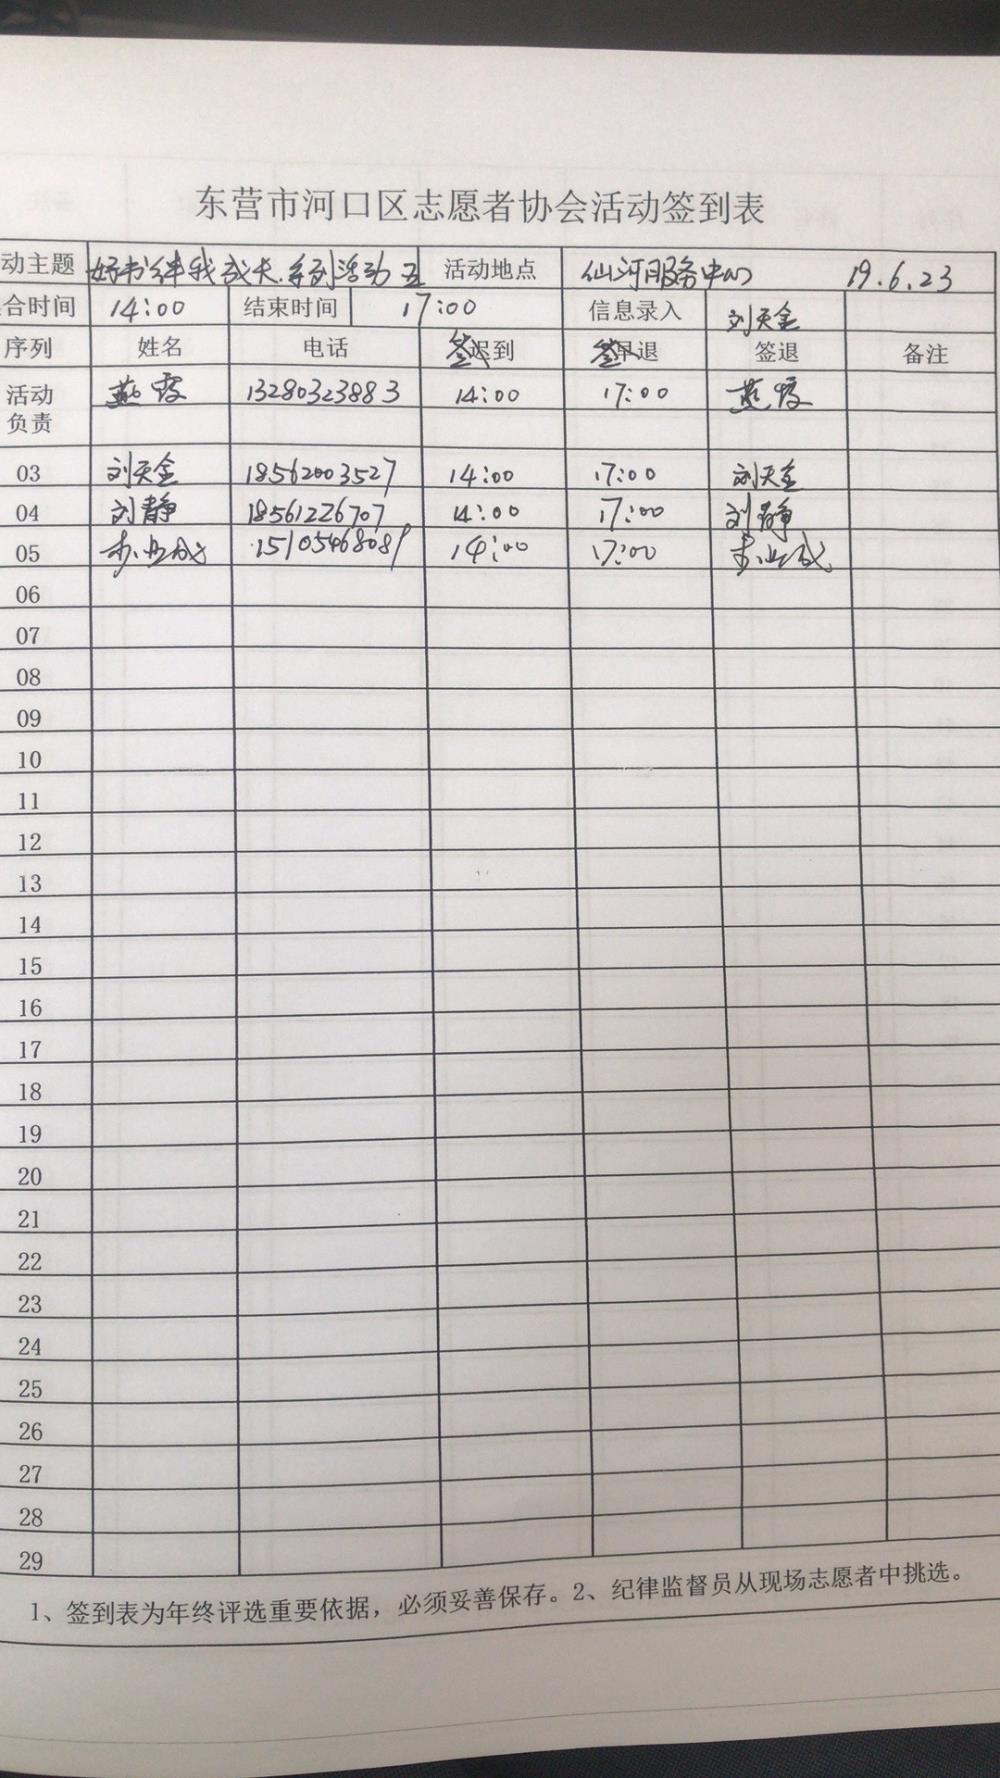 东营市河口区志愿者协会活动签到表
动主题 好书伴我成长.系列活动五 活动地点 仙河服务中心 19.6.23
合时间 14:00 结束时间 17:00 信息录入 刘天金
序列 姓名 电话 签迟到 签早退 签退 备注
活动负责 燕霞 13280323883 14:00 17:00 燕霞
03 刘天金 18562003527 14:00 17:00 刘天金
04 刘静 18561226707 14:00 17:00 刘静
05 15105468089 14:00 17:00
06
07
08
09
10
11
12
13
14
15
16
17
18
19
20
21
22
23
24
25
26
27
28
29
1、签到表为年终评选重要依据，必须妥善保存。2、纪律监督员从现场志愿者中挑选。